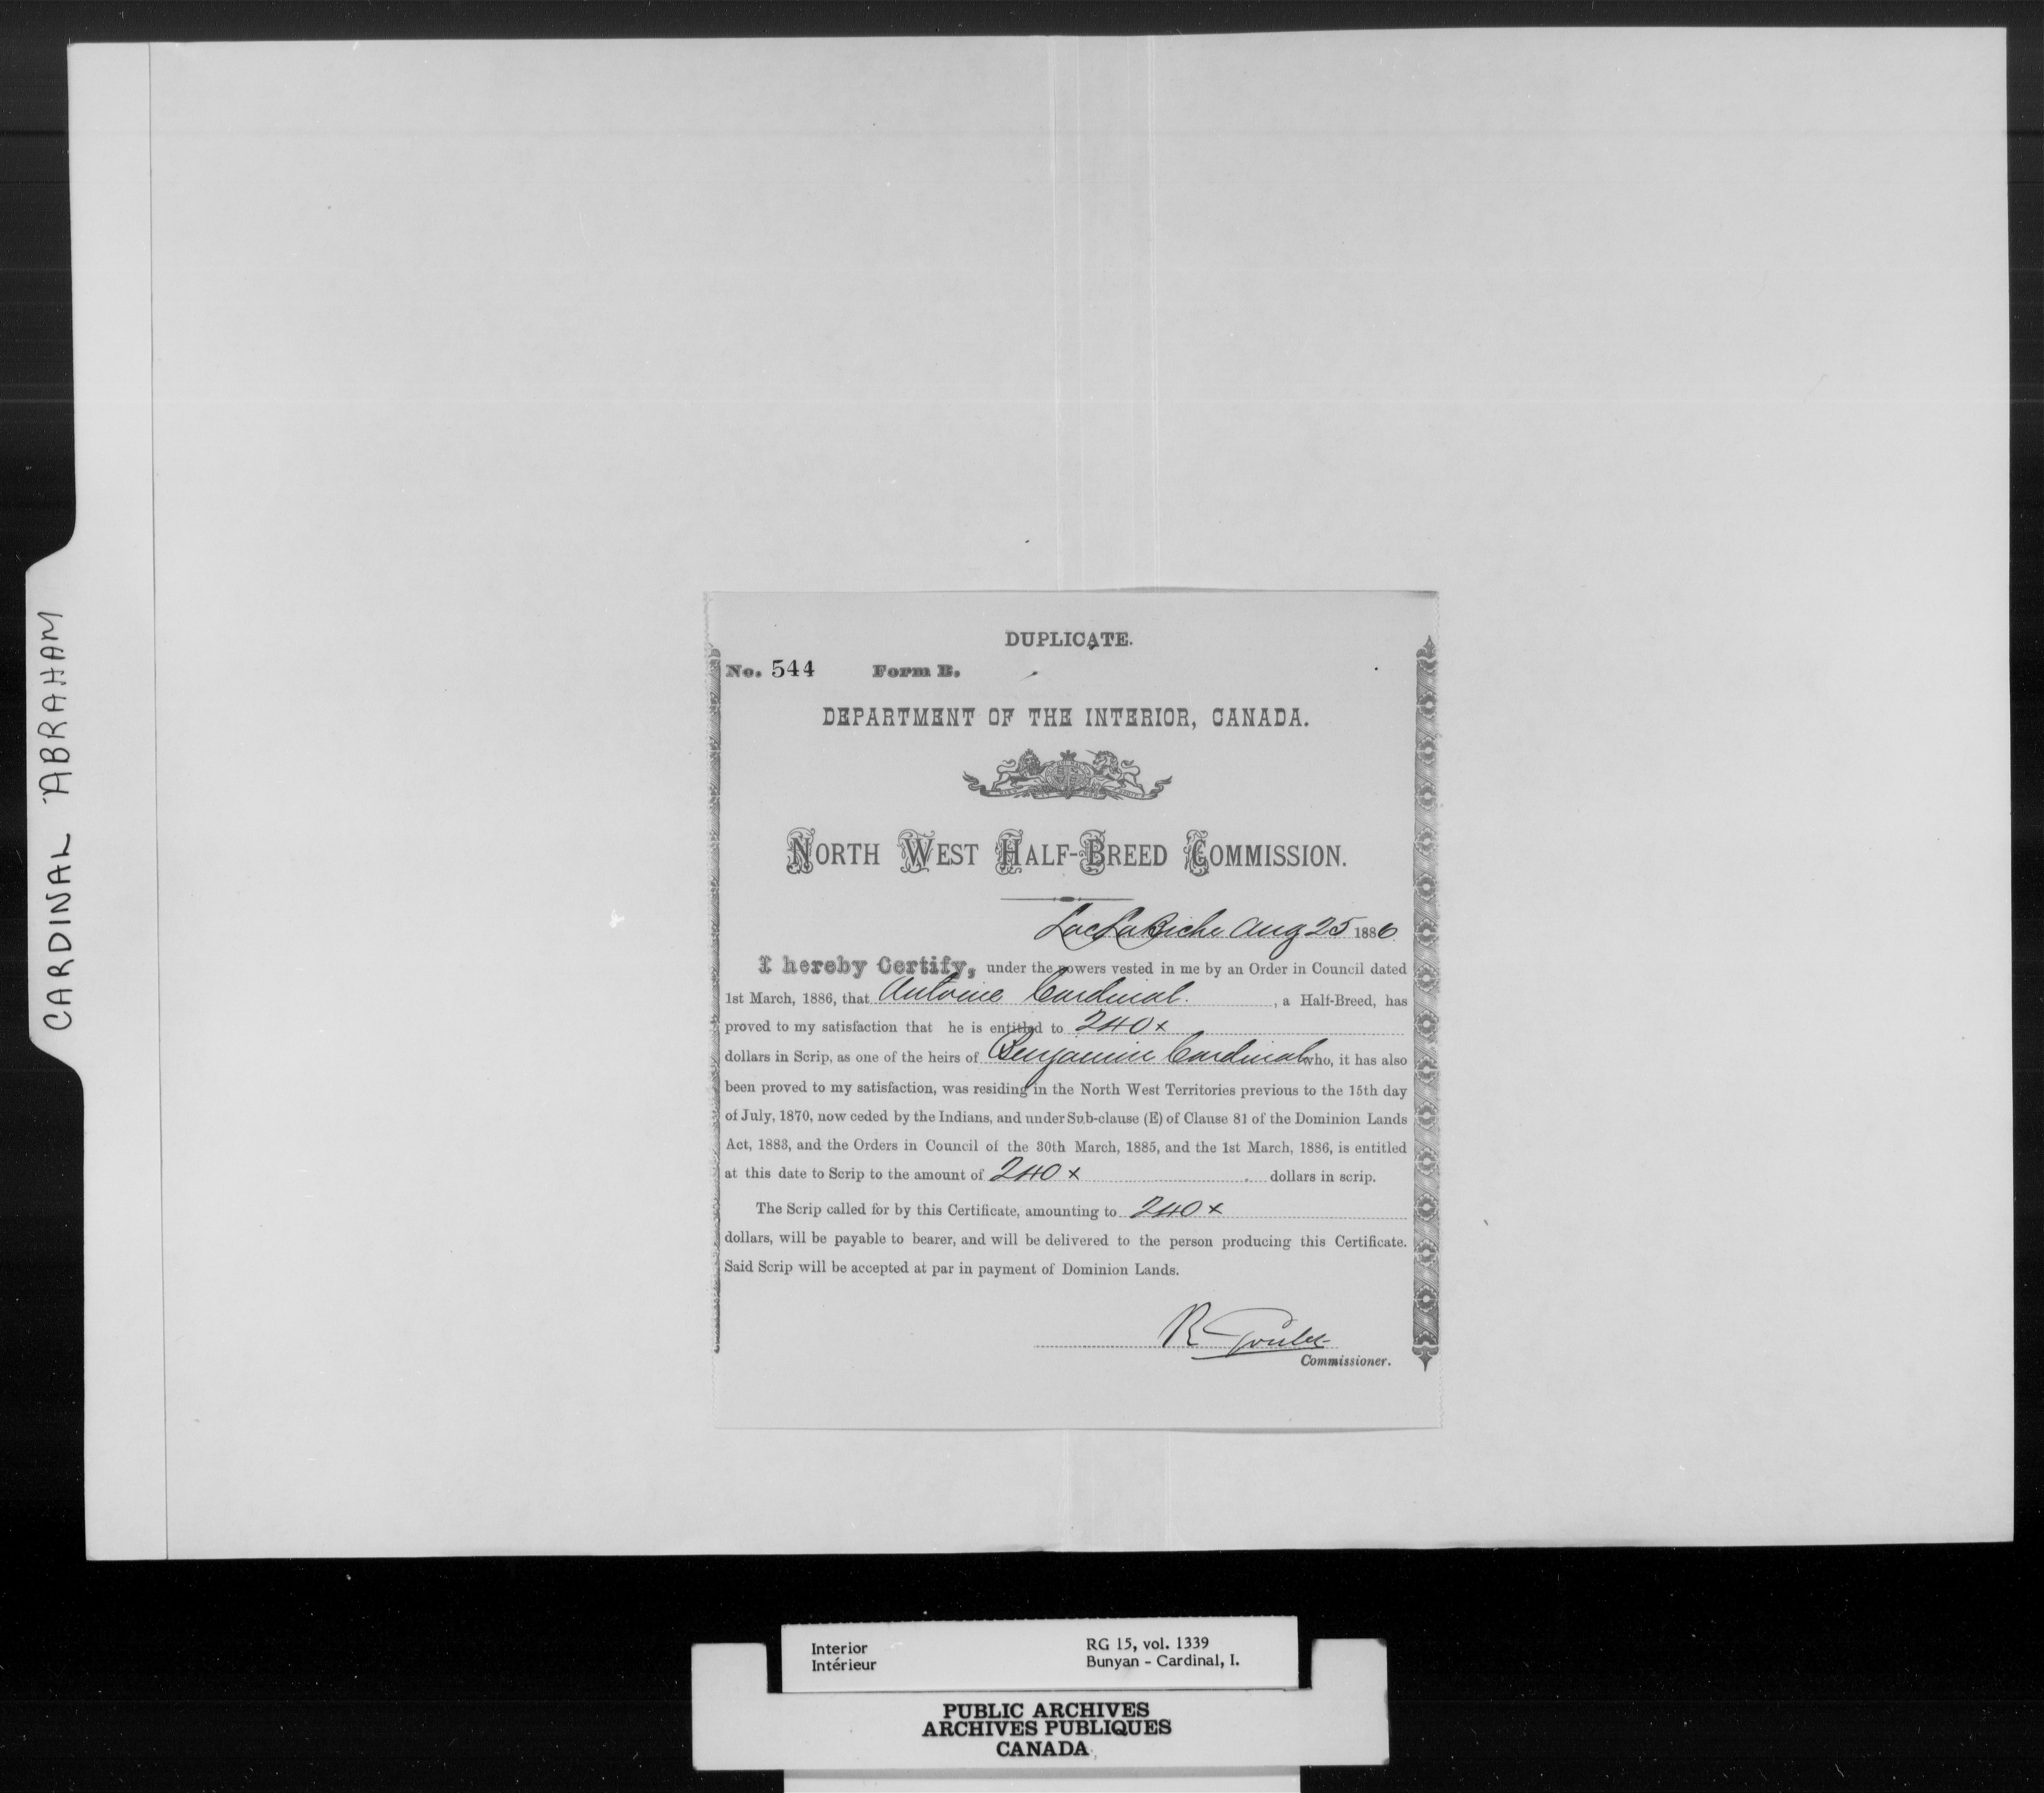 CARDINAL ABRAHAM
DUPLICATE.
No. 544 Form B.
DEPARTMENT OF THE INTERIOR, CANADA.
NORTH WEST HALF-BREED COMMISSION.
Lac La Biche Aug 25 1886
I hereby Certify, under the powers vested in me by an Order in Council dated
1st March, 1886, that Antoine Cardinal. , a Half-Breed, has
proved to my satisfaction that he is entitled to 240x
dollars in Scrip, as one of the heirs of Benjamin Cardinal who, it has also
been proved to my satisfaction, was residing in the North West Territories previous to the 15th day
of July, 1870, now ceded by the Indians, and under Sub-clause (E) of Clause 81 of the Dominion Lands
Act, 1883, and the Orders in Council of the 30th March, 1885, and the 1st March, 1886, is entitled
at this date to Scrip to the amount of 240x dollars in scrip.
The Scrip called for by this Certificate, amounting to 240x
dollars, will be payable to bearer, and will be delivered to the person producing this Certificate.
Said Scrip will be accepted at par in payment of Dominion Lands.
R Goulet
Commissioner.
Interior RG 15, vol. 1339
Intérieur Bunyan - Cardinal, I.
PUBLIC ARCHIVES
ARCHIVES PUBLIQUES
CANADA